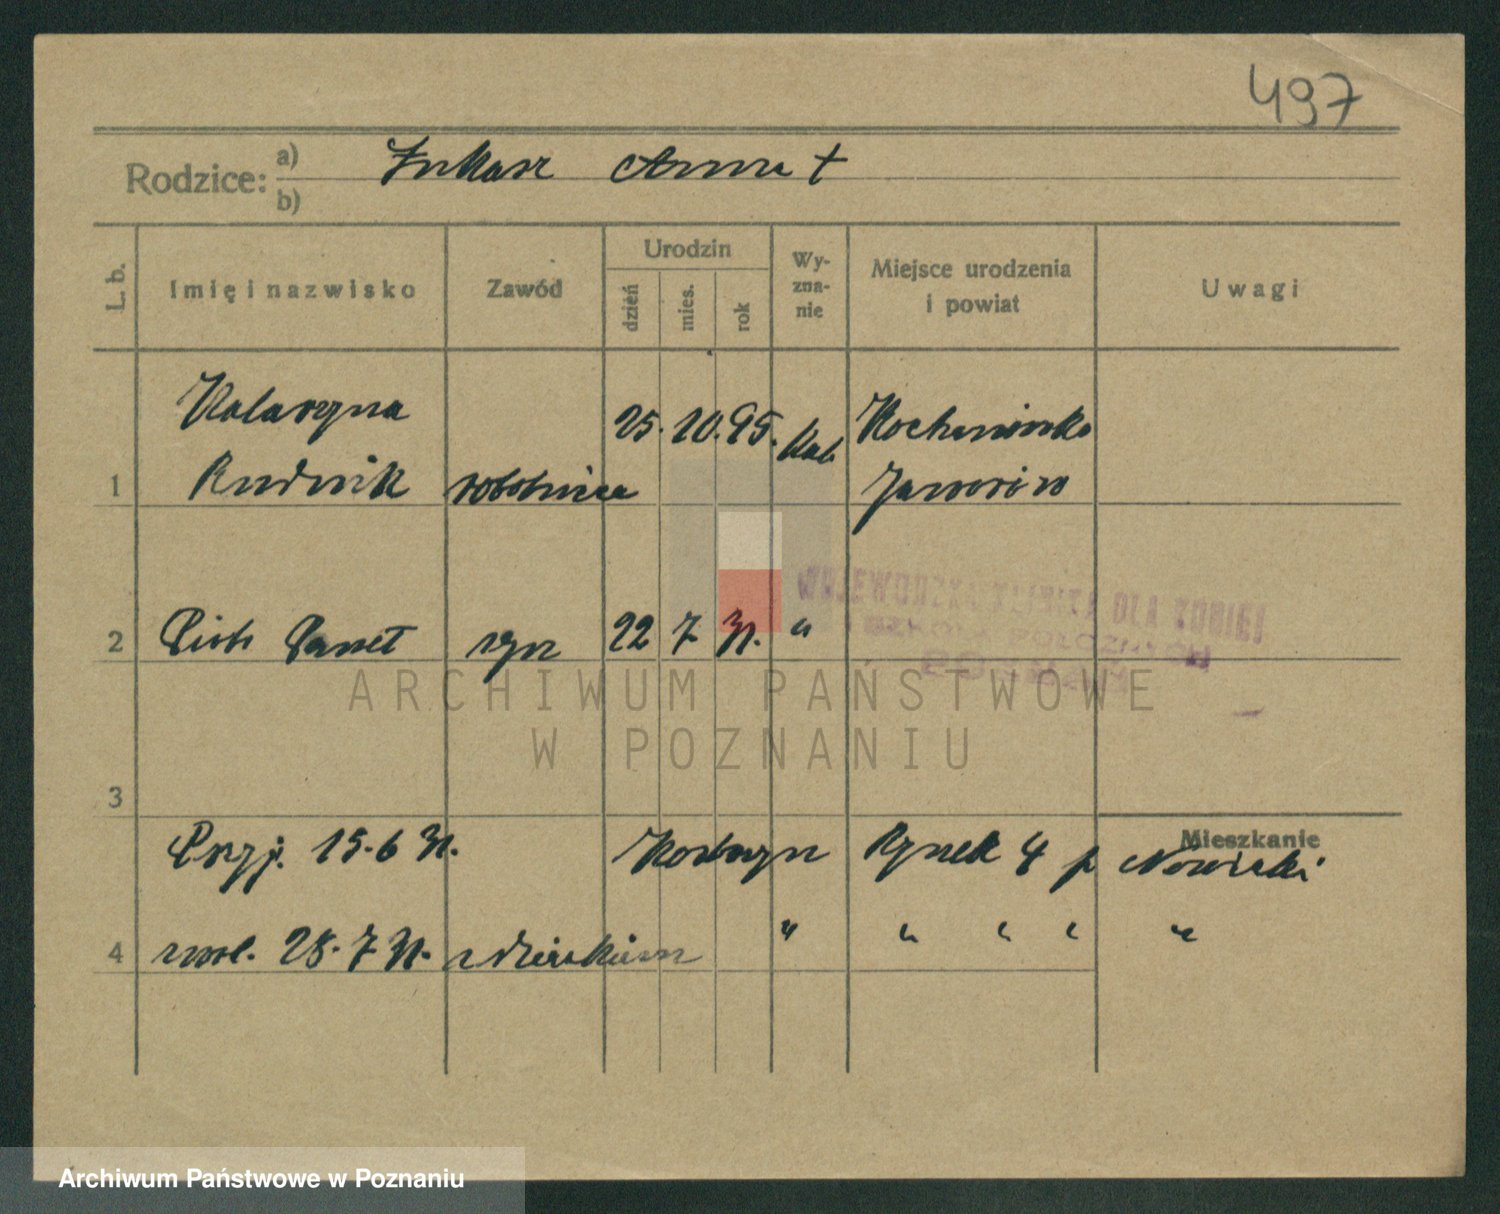 497
Rodzice: a) Łukasz Anna †
b)
L. b. Imię i nazwisko Zawód Urodzin dzień mies. rok Wyznanie Miejsce urodzenia i powiat Uwagi
Katarzyna 25. 10. 95. kat. Kochanówka
1 Rudnik robotnica Jaworów
WOJEWÓDZKA KLINIKA DLA KOBIET
2 Piotr Paweł syn 22 7 31. "
ARCHIWUM PAŃSTWOWE
W POZNANIU
3
Mieszkanie
Przyj. 15.6 31. Kostrzyn Rynek 4 p Nowicki
4 zwol. 28.7 31. z dzieckiem " " " " "
Archiwum Państwowe w Poznaniu